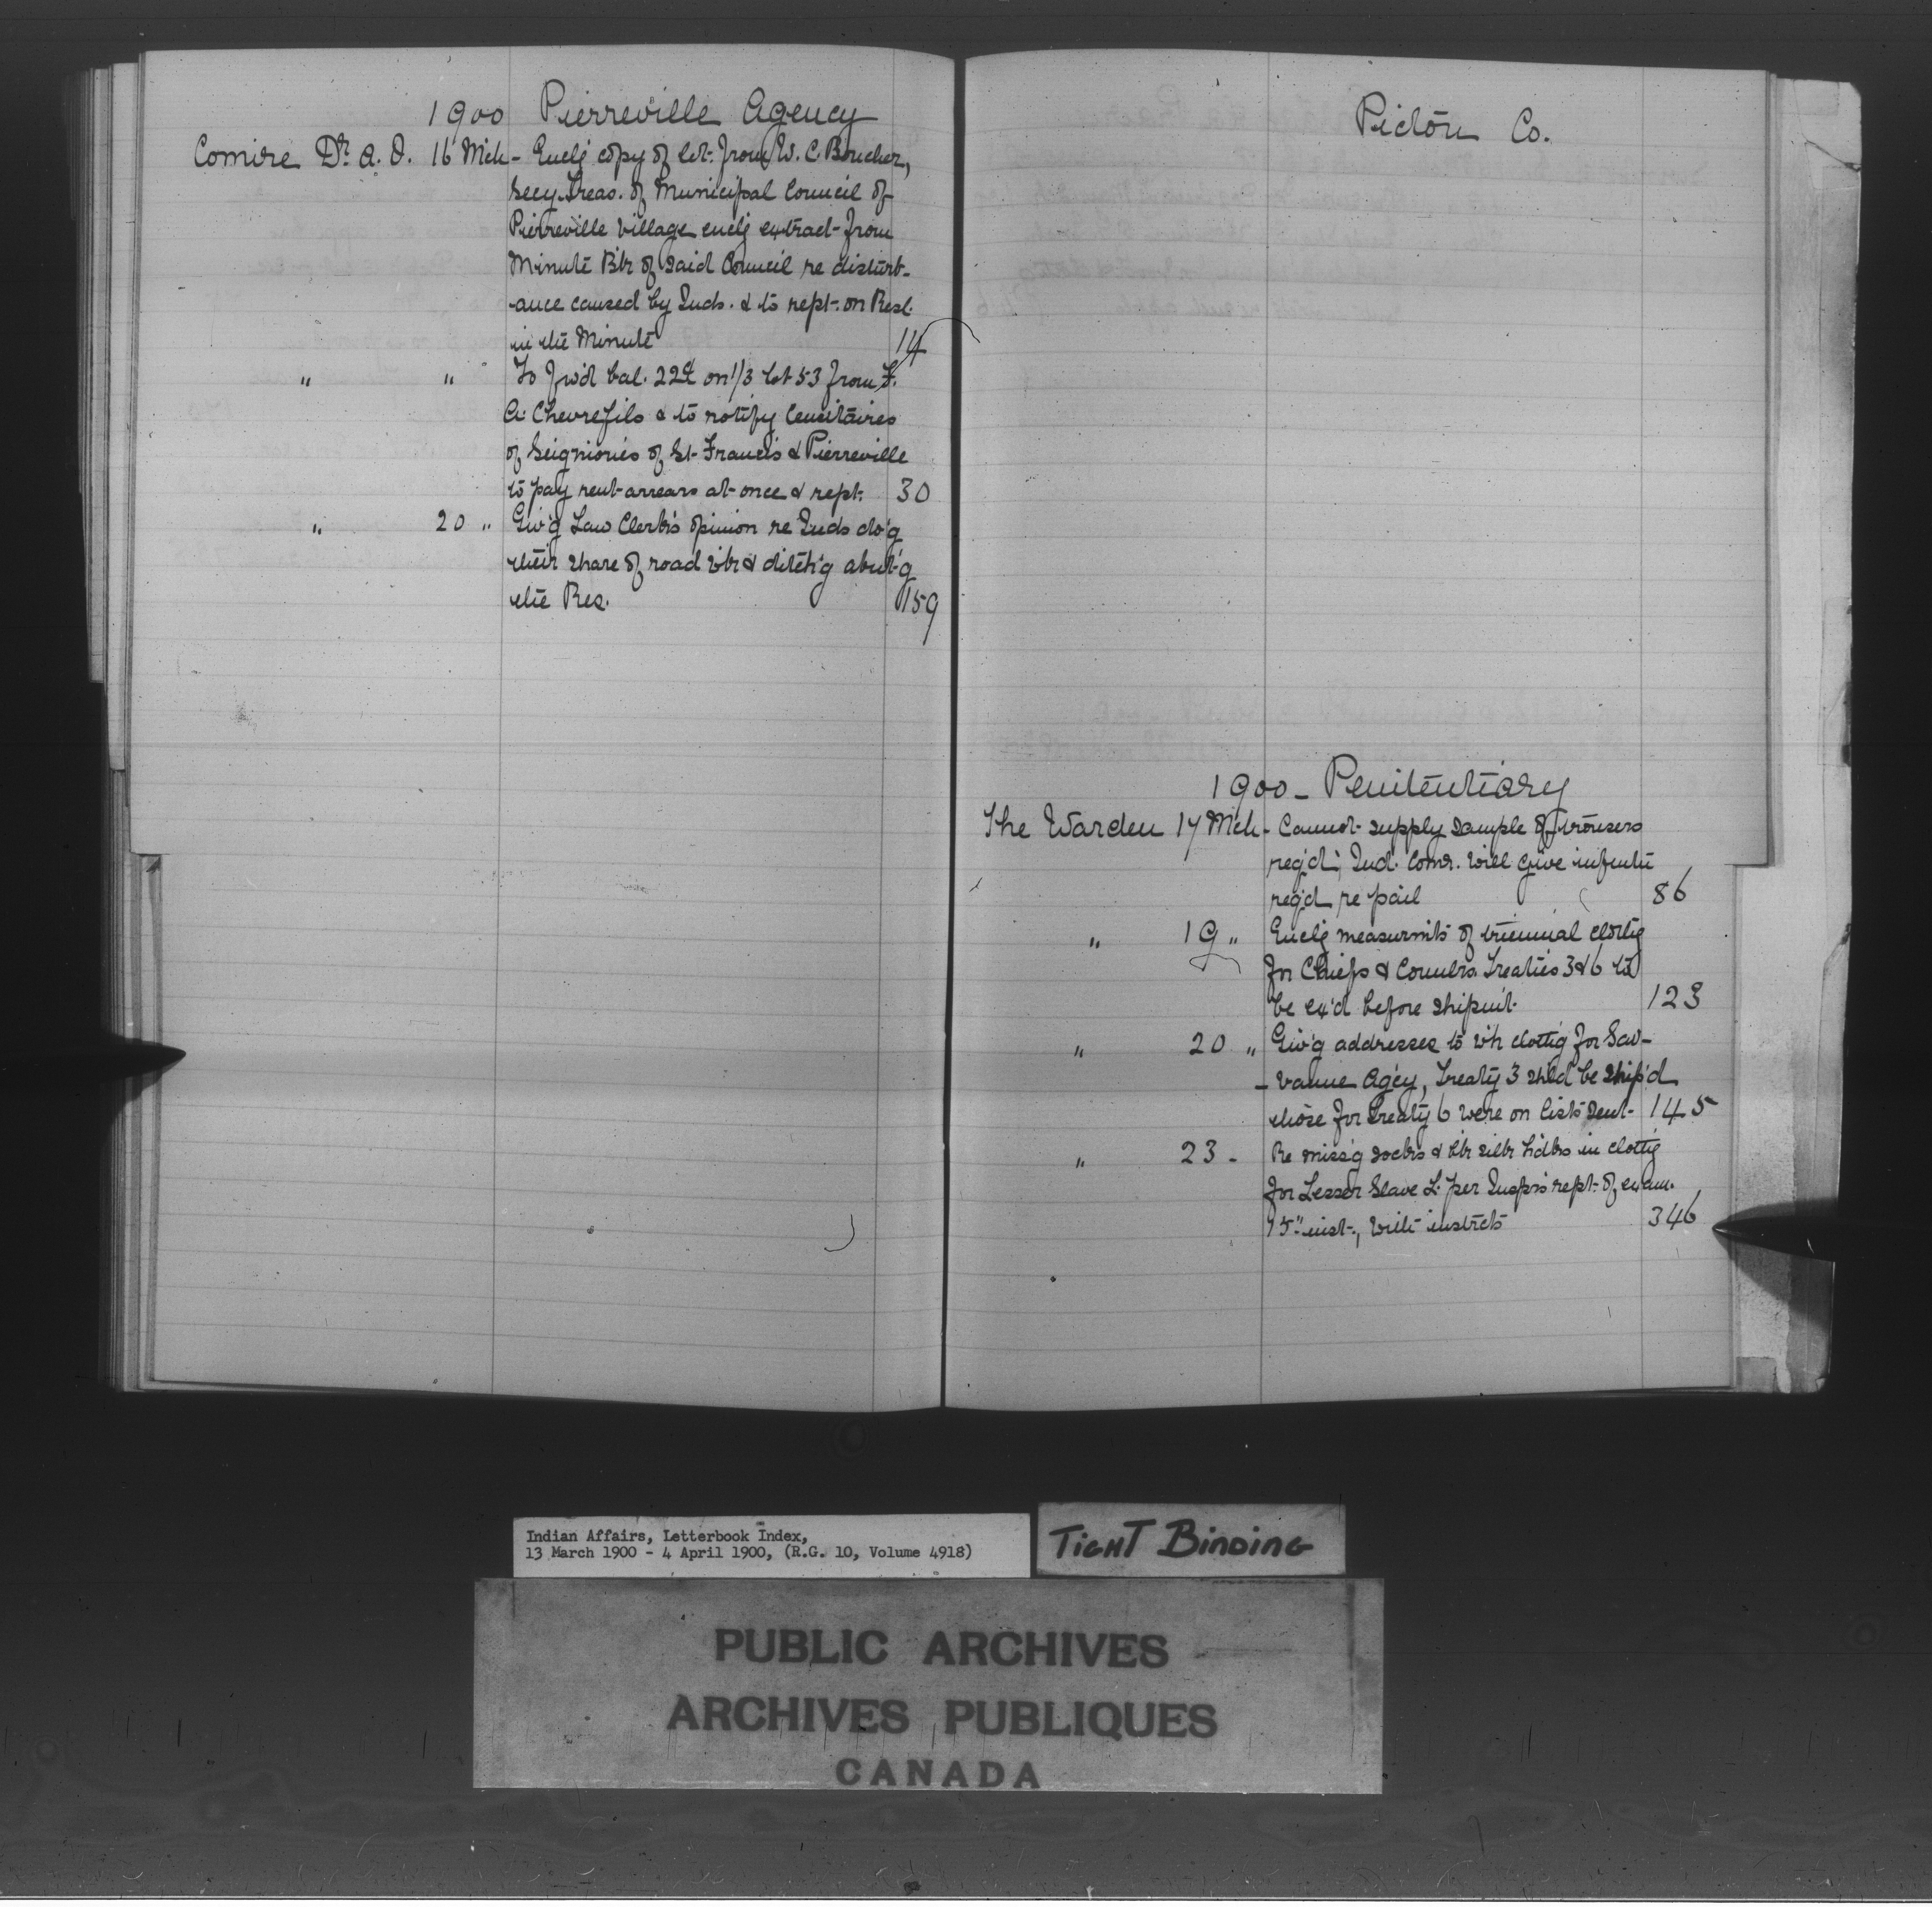 1900 Pierreville Agency
Comire Dr. A. O. 16 Mch - Enclg copy of let. from W. C. Boucher,
Secy. Treas. of Municipal Council of
Pierreville Village enclg extract from
Minute Bk of said Council re disturb-
-ance caused by Inds. & to rept. on Resl.
in the Minute 14
" " To fwd bal. 22¢ on 1/3 lot 53 from F.
A. Chevrefils & to notify Censitaires
of Seigniories of St. Francis & Pierreville
to pay rent arrears at once & rept. 30
" 20 " Giv'g Law Clerk's opinion re Inds do'g
their share of road wk & ditch'g abut'g
the Res. 159
Pictou Co.
1900 - Penitentiary
The Warden 17 Mch - Cannot supply sample of trousers
req'd; Ind. Comr. will give infmtn
req'd re pail 86
" 19 " Enclg measurmts of triennial clothg
for Chiefs & Councrs. Treaties 3 & 6 to
be ex'd before shipmt. 123
" 20 " Giv'g addresses to wh clothg for Sav-
- vanne Agcy, Treaty 3 shld be ship'd
those for Treaty 6 were on lists sent 145
" 23 - Re miss'g socks & bk silk hdks in clothg
for Lesser Slave L. per Insp's rept. of exam.
15" inst., with instrcts 346
Indian Affairs, Letterbook Index,
13 March 1900 - 4 April 1900, (R.G. 10, Volume 4918)
TIGHT BINDING
PUBLIC ARCHIVES
ARCHIVES PUBLIQUES
CANADA